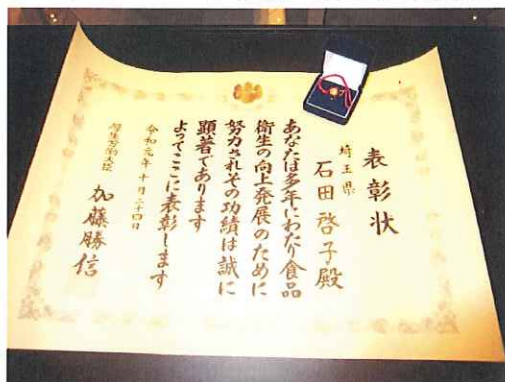 表彰状
埼玉県
石田啓子殿
あなたは多年にわたり食品
衛生の向上発展のために
努力されその功績は誠に
顕著であります
よってここに表彰します
令和元年十月二十四日
厚生労働大臣 加藤勝信